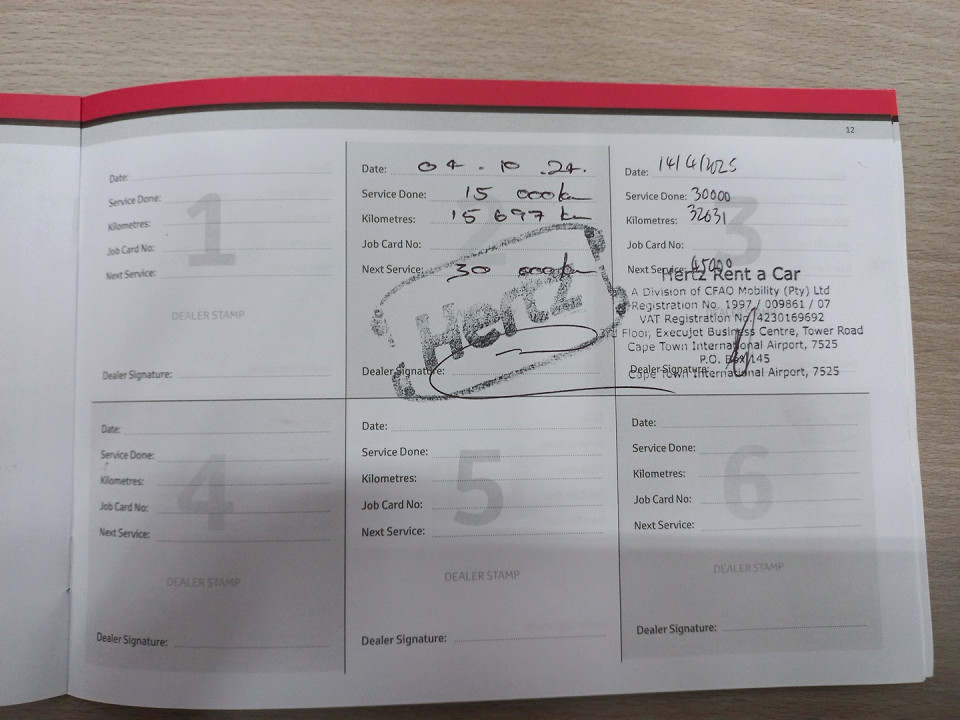 12
1
Date:
Service Done:
Kilometres:
Job Card No:
Next Service:
DEALER STAMP
Dealer Signature:
2
Date: 04.10.24.
Service Done: 15 000km
Kilometres: 15 697 km
Job Card No:
Next Service: 30 000km
Hertz
Dealer Signature:
3
Date: 14/4/2025
Service Done: 30000
Kilometres: 32631
Job Card No:
Next Service: 45000
Hertz Rent a Car
A Division of CFAO Mobility (Pty) Ltd
Registration No. 1997 / 009861 / 07
VAT Registration No. 4230169692
3rd Floor, Execujet Business Centre, Tower Road
Cape Town International Airport, 7525
P.O. Box 145
Dealer Signature:
Cape Town International Airport, 7525
4
Date:
Service Done:
Kilometres:
Job Card No:
Next Service:
DEALER STAMP
Dealer Signature:
5
Date:
Service Done:
Kilometres:
Job Card No:
Next Service:
DEALER STAMP
Dealer Signature:
6
Date:
Service Done:
Kilometres:
Job Card No:
Next Service:
DEALER STAMP
Dealer Signature: